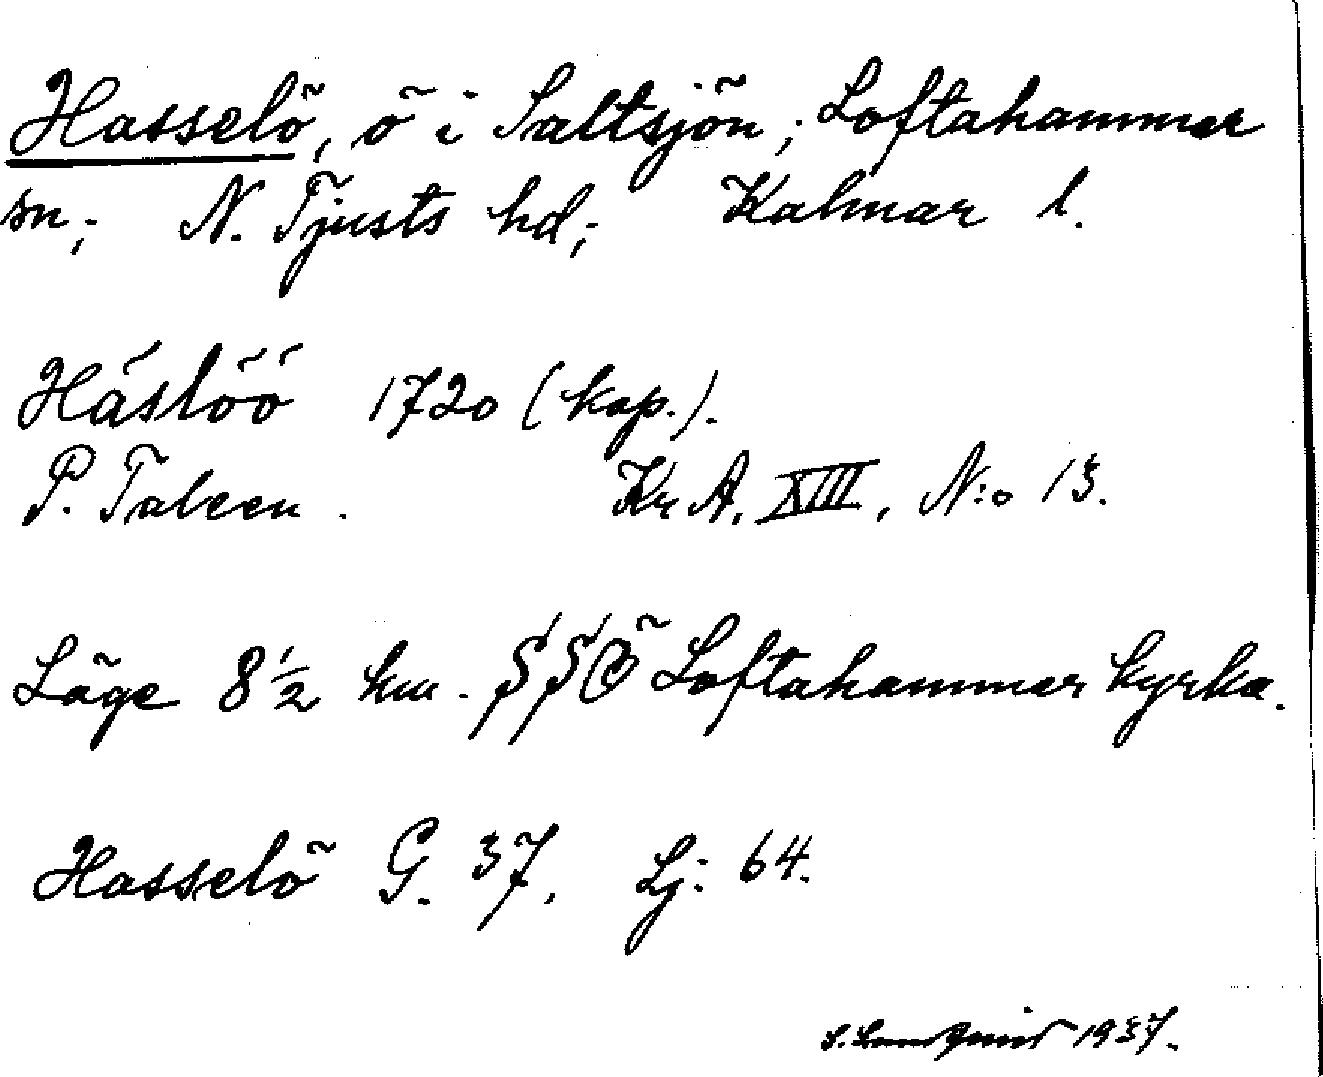 Hasselö, ö i Saltsjön; Loftahammar
sn; N. Tjusts hd; Kalmar l.
Häslöö 1720 (kop.).
P. Tateen. Kr A. XIII, N:o 13.
Läge 8 ½ km. SSÖ Loftahammar kyrka.
Hasselö G. 37, Lj: 64.
1937.